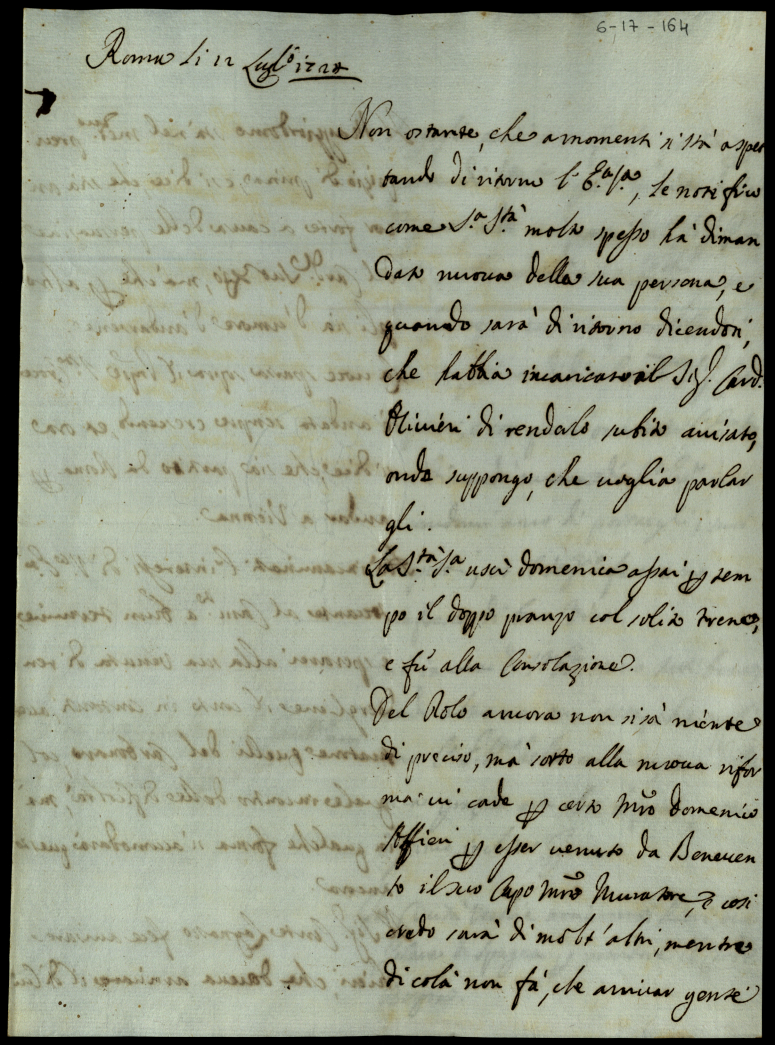 6-17-164
Roma li 12 Lugl.º 1724
Non ostante, che a momenti si stà aspet
tando di ritorno l'E.ª S.ª, le notifico
come S.ª S.tà molte spesso hà diman
dato nuova della sua persona, e
quando sarà di ritorno dicendosi,
che habbia incaricato il Sig.r Card.
Olivieri di renderlo subito avisato,
onde suppongo, che voglia parlar
gli.
La S.tà S.ª uscì domenica assai per tem
po il doppo pranzo col solito treno,
e fù alla Consolazione.
Del Rolo ancora non si sà niente
di preciso, mà sotto alla nuova rifor
ma vi cade per certo Mrõ Domenico
per esser venuto da Beneven
to il suo Capo Mrõ Muratore, e così
credo sarà di molt'altri, mentre
di colà non fà, che arrivar gente